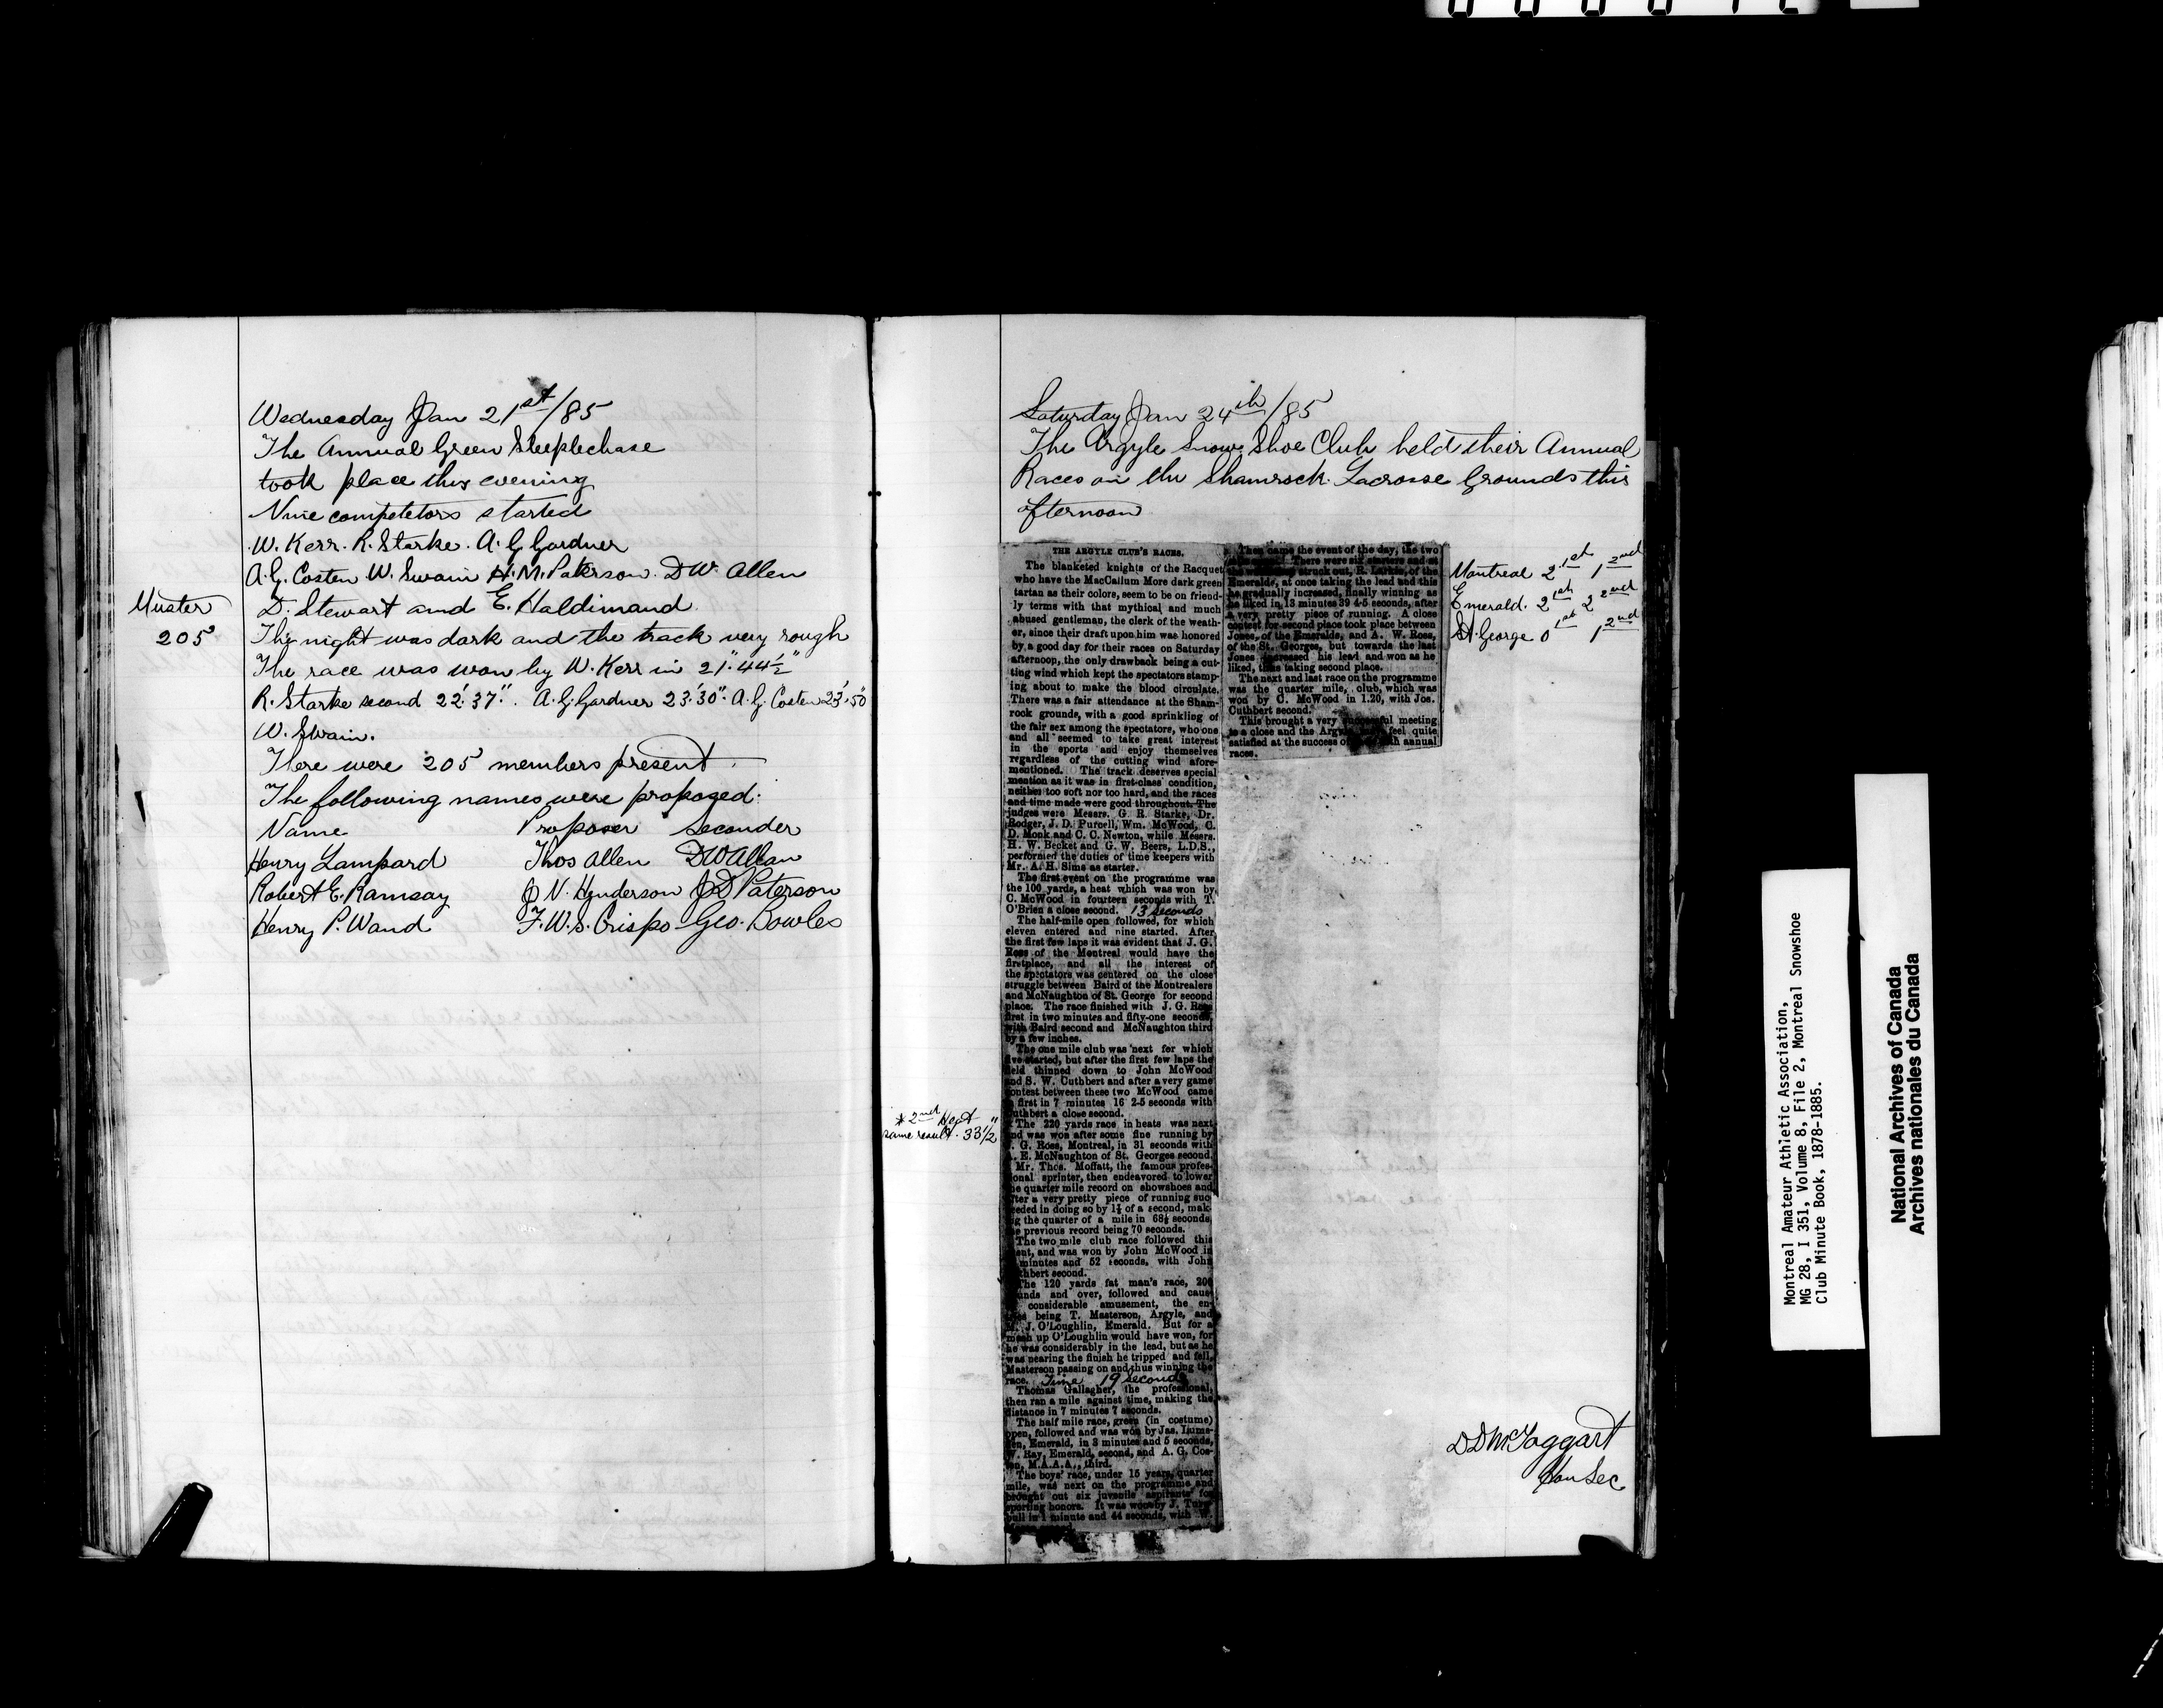 Wednesday Jan 21st/85
The Annual Green Steeplechase
took place this evening
Nine competetors started
W. Kerr. R. Starke. A. G. Gardner
A. G. Costen W. Swain H. M. Paterson. D W. Allen
Muster
D. Stewart and E. Haldimand
205
The night was dark and the track very rough
The race was won by W. Kerr in 21". 44½"
R. Starke second 22'. 37". A. G. Gardner 23'. 30". A. G. Costen 23'. 50"
W. Swain.
There were 205 members present.
The following names were proposed:
Name Proposer Seconder
Henry Lampard Thos Allen D W Allan
Robert E. Ramsay J N. Henderson J D Paterson
Henry P. Wand F. W. S. Crispo Geo. Bowles
Saturday Jan 24th/85
The Argyle Snow Shoe Club held their Annual
Races on the Shamrock Lacrosse Grounds this
afternoon
THE ARGYLE CLUB'S RACES.
The blanketed knights of the Racquet
who have the MacCallum More dark green
tartan as their colors, seem to be on friend-
ly terms with that mythical and much
abused gentleman, the clerk of the weath-
er, since their draft upon him was honored
by a good day for their races on Saturday
afternoon, the only drawback being a cut-
ting wind which kept the spectators stamp-
ing about to make the blood circulate.
There was a fair attendance at the Sham-
rock grounds, with a good sprinkling of
the fair sex among the spectators, who one
and all seemed to take great interest
in the sports and enjoy themselves
regardless of the cutting wind afore-
mentioned. The track deserves special
mention as it was in first-class condition,
neither too soft nor too hard, and the races
and time made were good throughout. The
judges were Messrs. G. R. Starke, Dr.
Rodger, J. D. Purcell, Wm. McWood, C.
D. Monk and C. C. Newton, while Messrs.
H. W. Becket and G. W. Beers, L.D.S.,
performed the duties of time keepers with
Mr. A. H. Sims as starter.
The first event on the programme was
the 100 yards, a heat which was won by
C. McWood in fourteen seconds with T.
O'Brien a close second. 13 seconds
The half-mile open followed, for which
eleven entered and nine started. After
the first few laps it was evident that J. G.
Ross of the Montreal would have the
first place, and all the interest of
the spectators was centered on the close
struggle between Baird of the Montrealers
and McNaughton of St. George for second
place. The race finished with J. G. Ross
first in two minutes and fifty-one seconds,
with Baird second and McNaughton third
by a few inches.
The one mile club was next for which
five started, but after the first few laps the
field thinned down to John McWood
and S. W. Cuthbert and after a very game
contest between these two McWood came
first in 7 minutes 16 2-5 seconds with
Cuthbert a close second.
* 2nd Heat
same result. 33½"
The 220 yards race in heats was next
and was won after some fine running by
G. Ross, Montreal, in 31 seconds with
E. McNaughton of St. Georges second.
Mr. Thos. Moffatt, the famous profes-
ional sprinter, then endeavored to lower
he quarter mile record on showshoes and
fter a very pretty piece of running suc
eeded in doing so by 1½ of a second, mak-
g the quarter of a mile in 68½ seconds,
e previous record being 70 seconds.
The two mile club race followed this
ent, and was won by John McWood in
minutes and 52 seconds, with John
thbert second.
The 120 yards fat man's race, 200
unds and over, followed and caus
considerable amusement, the en-
being T. Masterson, Argyle, and
J. O'Loughlin, Emerald. But for a
mash up O'Loughlin would have won, for
he was considerably in the lead, but as he
was nearing the finish he tripped and fell,
Masterson passing on and thus winning the
race. Time 19 seconds
Thomas Gallagher, the professional,
then ran a mile against time, making the
distance in 7 minutes 7 seconds.
The half mile race, green (in costume)
open, followed and was won by Jas. Lums-
den, Emerald, in 3 minutes and 5 seconds,
W. Ray, Emerald, second, and A. G. Cos-
ten, M.A.A.A., third.
The boys' race, under 15 years, quarter
mile, was next on the programme and
brought out six juvenile aspirants for
sporting honors. It was won by J. Turn-
bull in 1 minute and 44 seconds, with W.
Then came the event of the day, the two
There were six starters and at
struck out, R. Larkin, of the
Emeralds, at once taking the lead and this
he gradually increased, finally winning as
he liked in 13 minutes 39 4-5 seconds, after
a very pretty piece of running. A close
contest for second place took place between
Jones, of the Emeralds, and A. W. Ross,
of the St. Georges, but towards the last
Jones increased his lead and won as he
liked, thus taking second place.
The next and last race on the programme
was the quarter mile, club, which was
won by C. McWood in 1.20, with Jos.
Cuthbert second.
This brought a very successful meeting
to a close and the Argyle feel quite
satisfied at the success of annual
races.
Montreal 2 1st 1 2nd
Emerald. 2 1st 2 2nd
St. George 0 1st 1 2nd
D D McTaggart
Hon Sec
Montreal Amateur Athletic Association,
MG 28, I 351, Volume 8, File 2, Montreal Snowshoe
Club Minute Book, 1878-1885.
National Archives of Canada
Archives nationales du Canada